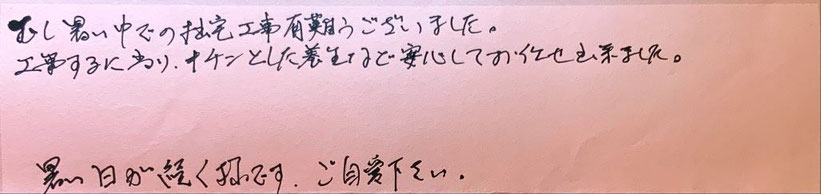 むし暑い中での拙宅工事有難うございました。
工事するに当り、キチンとした養生など安心してお任せ出来ました。
暑い日が続く様です、ご自愛下さい。